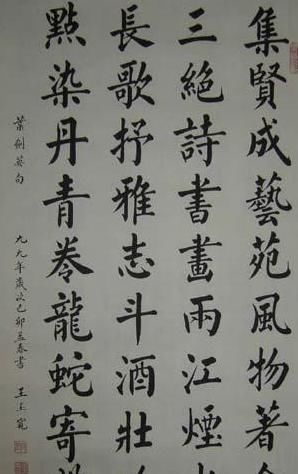 集賢成藝苑風物著
三絕詩書畫兩江煙
長歌抒雅志斗酒壯
點染丹青卷龍蛇寄
葉劍英句 九九年歲次己卯孟春書 王玉寬